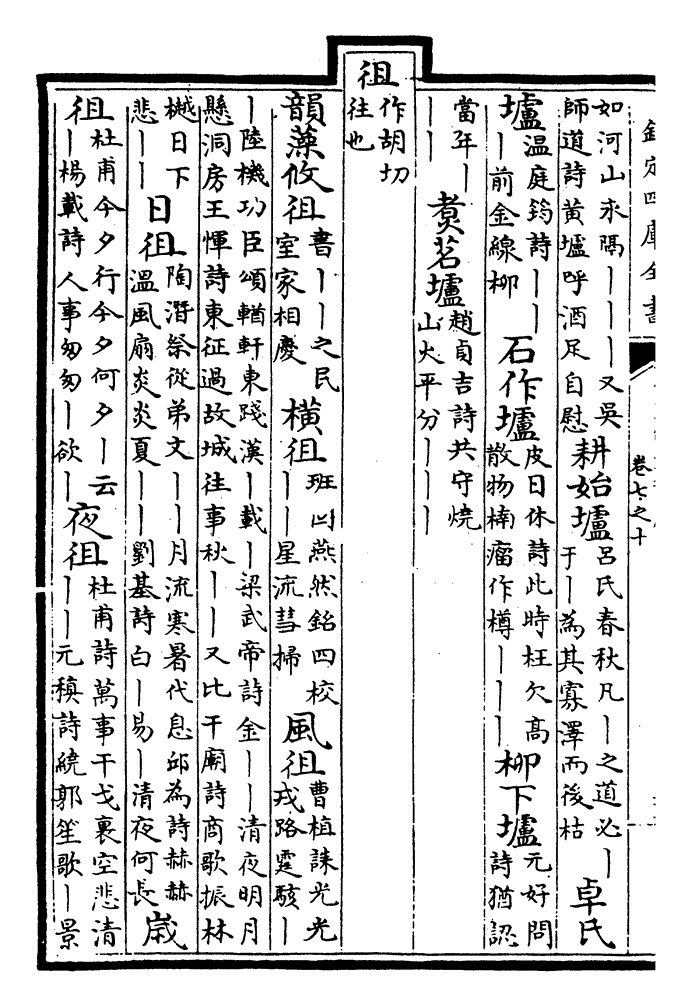 欽定四庫全書
卷七之十
如河山永隔｜｜｜又吳
師道詩黃壚呼酒足自慰
耕始壚
呂氏春秋凡｜之道必｜
于｜為其寡澤而後枯
卓氏
壚
溫庭筠詩｜｜
｜前金線柳
石作壚
皮日休詩此時枉欠高
散物楠瘤作樽｜｜｜
柳下壚
元好問
詩猶認
當年｜
｜｜
煑茗壚
趙貞吉詩共守燒
山火平分｜｜｜
徂
作胡切
往也
韻藻攸徂
書｜｜之民
室家相慶
橫徂
班固燕然銘四校
｜｜星流彗掃
風徂
曹植誄光光
戎路霆駭｜
｜陸機功臣頌輶軒東踐漢｜載｜梁武帝詩金｜｜清夜明月
懸洞房王惲詩東征過故城往事秋｜｜又比干廟詩商歌振林
樾日下
悲｜｜
日徂
陶潛祭從弟文｜｜月流寒暑代息邱為詩赫赫
溫風扇炎炎夏｜｜劉基詩白｜易｜清夜何長
歲
徂
杜甫今夕行今夕何夕｜云
｜楊載詩人事匆匆｜欲｜
夜徂
杜甫詩萬事干戈裏空悲清
｜｜元稹詩繞郭笙歌｜景